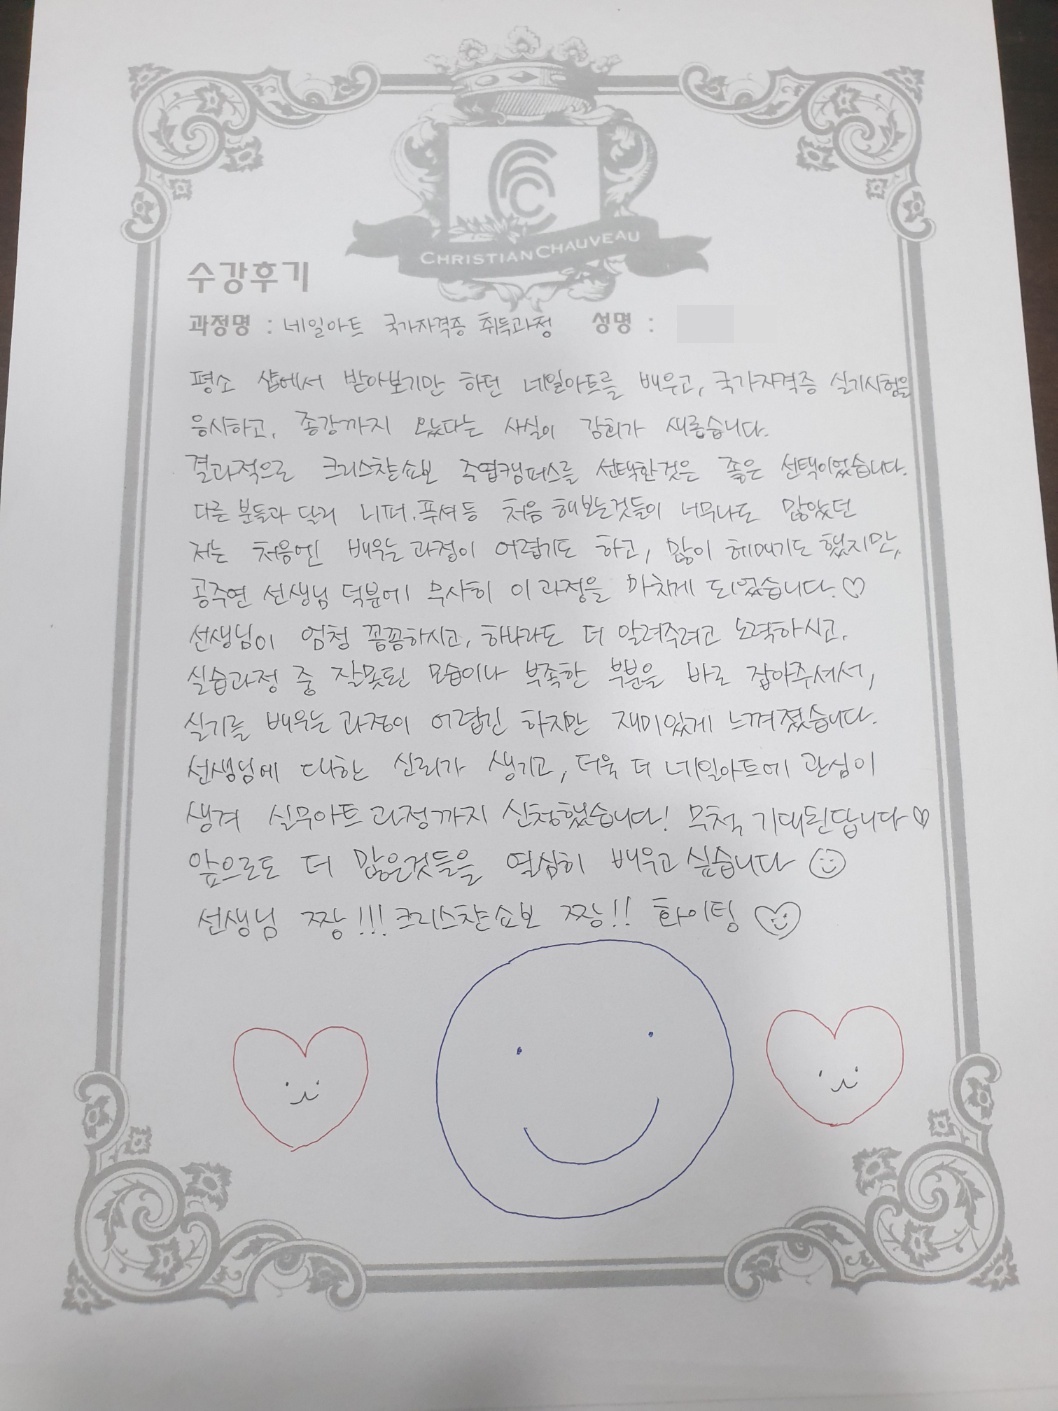 CHRISTIAN CHAUVEAU
수강후기
과정명 : 네일아트 국가자격증 취득과정 성명 :
평소 샵에서 받아보기만 하던 네일아트를 배우고, 국가자격증 실기시험을
응시하고, 종강까지 왔다는 사실이 감회가 새롭습니다.
결과적으로 크리스챤쇼보 주엽캠퍼스를 선택한것은 좋은 선택이었습니다.
다른 분들과 달리 니퍼, 푸셔등 처음 해보는것들이 너무나도 많았던
저는 처음엔 배우는 과정이 어렵기도 하고, 많이 헤매기도 했지만,
공주연 선생님 덕분에 무사히 이 과정을 마치게 되었습니다.♡
선생님이 엄청 꼼꼼하시고, 하나라도 더 알려주려고 노력하시고,
실습과정 중 잘못된 모습이나 부족한 부분을 바로 잡아주셔서,
실기를 배우는 과정이 어렵긴 하지만 재미있게 느껴졌습니다.
선생님에 대한 신뢰가 생기고, 더욱 더 네일아트에 관심이
생겨 실무아트 과정까지 신청했습니다! 무척, 기대된답니다♡
앞으로도 더 많은것들을 열심히 배우고 싶습니다
선생님 짱!!! 크리스챤쇼보 짱!! 화이팅